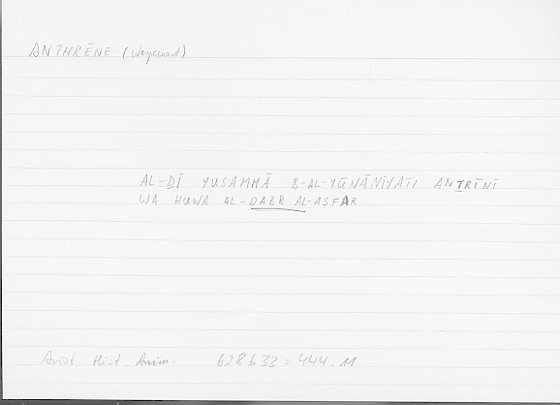 ANTHRĒNE (Wespenart)
AL-ḎĪ YUSAMMĀ B-AL-YŪNĀNĪYATI ANṮRĪNĪ
WA HUWA AL-DABR AL-AṢFAR
Arist. Hist. Anim. 628b33 = 444.11